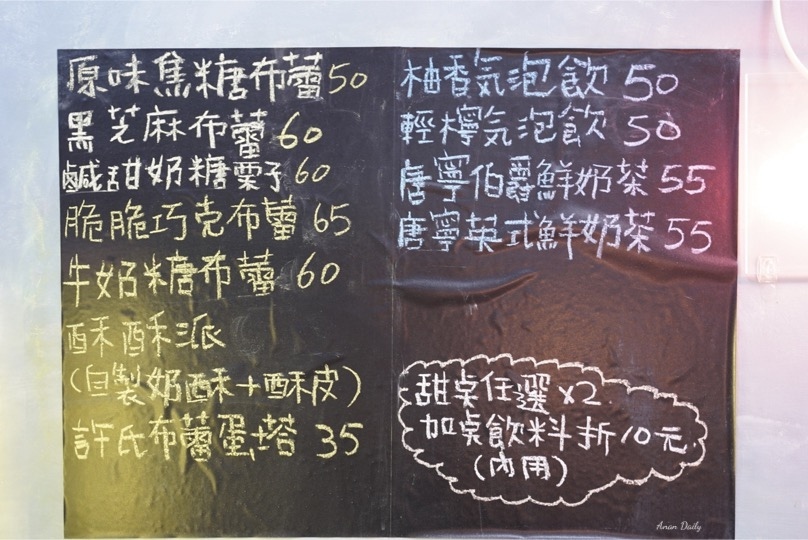 原味焦糖布蕾50
黑芝麻布蕾 60
鹹甜奶糖栗子60
脆脆巧克布蕾 65
牛奶糖布蕾 60
酥酥派
(自製奶酥+酥皮)
許氏布蕾蛋塔 35
柚香気泡飲 50
輕檸気泡飲 50
唐寧伯爵鮮奶茶 55
唐寧英式鮮奶茶 55
甜桌任選 x2
加桌飲料折10元
(內用)
Anan Daily